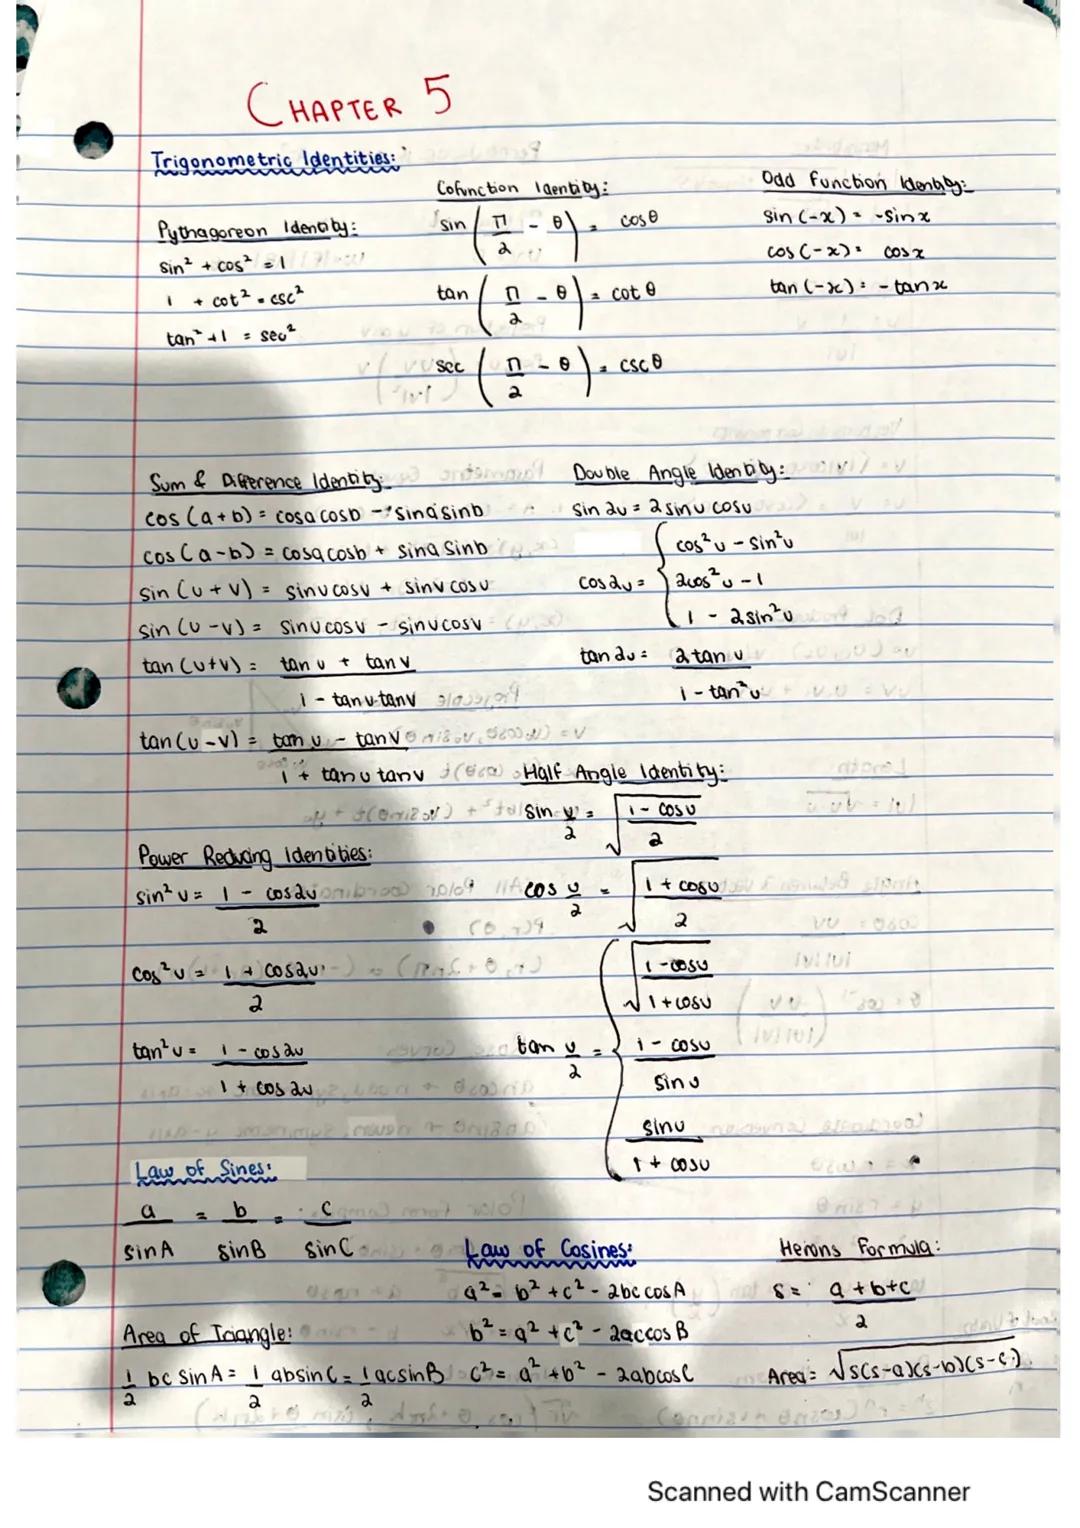 CHAPTER 5
Trigonometric Identities:
Pythagorean Identity:
sin² + cos² = 1
1 + cot² = csc²
tan² + 1 = sec²
Cofunction Identity:
sin (π/2 - θ) = cos θ
tan (π/2 - θ) = cot θ
sec (π/2 - θ) = csc θ
Odd Function Identity:
sin (-x) = -sin x
cos (-x) = cos x
tan (-x) = -tan x
Sum & Difference Identity:
cos (a+b) = cosa cosb - sina sinb
cos (a-b) = cosa cosb + sina sinb
sin (u+v) = sinu cosv + sinv cosu
sin (u-v) = sinu cosv - sinu cosv
tan (u+v) = tan u + tan v / 1 - tanu tanv
tan (u-v) = tan u - tan v / 1 + tanu tanv
Double Angle Identity:
sin 2u = 2 sinu cosu
cos 2u = { cos²u - sin²u
2cos²u - 1
1 - 2sin²u
tan 2u = 2 tan u / 1 - tan²u
Half Angle Identity:
sin u/2 = √(1 - cosu / 2)
cos u/2 = √(1 + cosu / 2)
tan u/2 = { √(1 - cosu / 1 + cosu)
1 - cosu / sin u
sinu / 1 + cosu
Power Reducing Identities:
sin²u = 1 - cos2u / 2
cos²u = 1 + cos2u / 2
tan²u = 1 - cos2u / 1 + cos2u
Law of Sines:
a / sinA = b / sinB = c / sinC
Area of Triangle:
1/2 bc sinA = 1/2 absinC = 1/2 acsinB
Law of Cosines:
a² = b² + c² - 2bc cosA
b² = a² + c² - 2accosB
c² = a² + b² - 2abcosC
Herons Formula:
s = a+b+c / 2
Area = √s(s-a)(s-b)(s-c)
Scanned with CamScanner